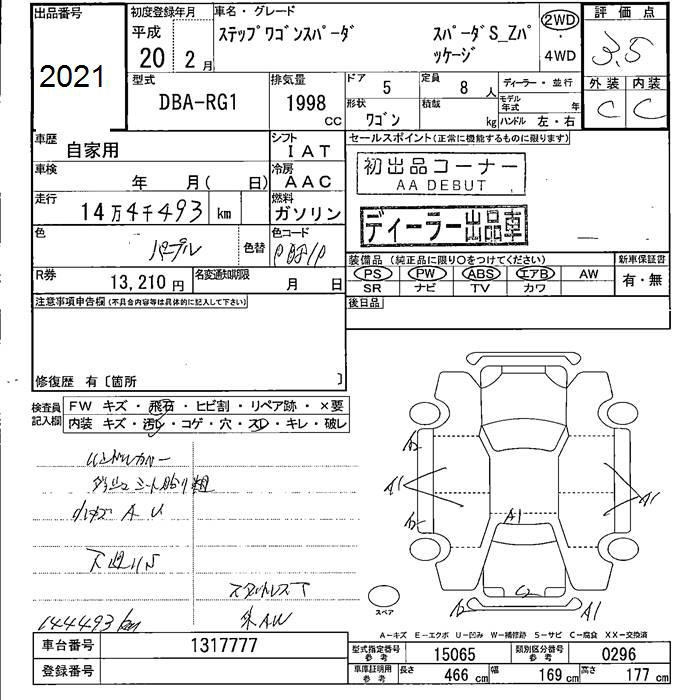 出品番号 初度登録年月 車名・グレード 評価点
平成 ステップワゴンスパーダ スパーダS_Zパ 2WD
20 2月 ッケージ 4WD 3.5
2021
型式 排気量 ドア 定員 ディーラー・並行 外装 内装
DBA-RG1 1998 CC 5 8人 モデル年式 年 C C
形状 積載
ワゴン kg ハンドル 左・右
車歴 自家用 シフト IAT セールスポイント(正常に機能するものに限ります)
車検 年 月( 日) 冷房 AAC 初出品コーナー
AA DEBUT
走行 14万4千493 km 燃料 ガソリン ディーラー出品車
色 パープル 色替 色コード
装備品 (純正品に限り○をつけてください) 新車保証書
R券 13,210円 名変通知期限 月 日 PS PW ABS エアB AW 有・無
SR ナビ TV カワ
注意事項申告欄(不具合内容等は具体的に記入して下さい) 後日品
修復歴 有〔箇所 〕
検査員記入欄 FW キズ・飛石・ヒビ割・リペア跡・×要
内装 キズ・汚レ・コゲ・穴・スレ・キレ・破レ
ハンドルカバー
小キズ AU
144493km 外AW
A2 A1 A2 A1 A1 A1
スペア
A-キズ E-エクボ U-凹み W-補修跡 S-サビ C-腐食 XX-交換済
車台番号 1317777 型式指定番号参考 15065 類別区分番号参考 0296
登録番号 車庫証明用参考 長さ 466cm 幅 169cm 高さ 177cm